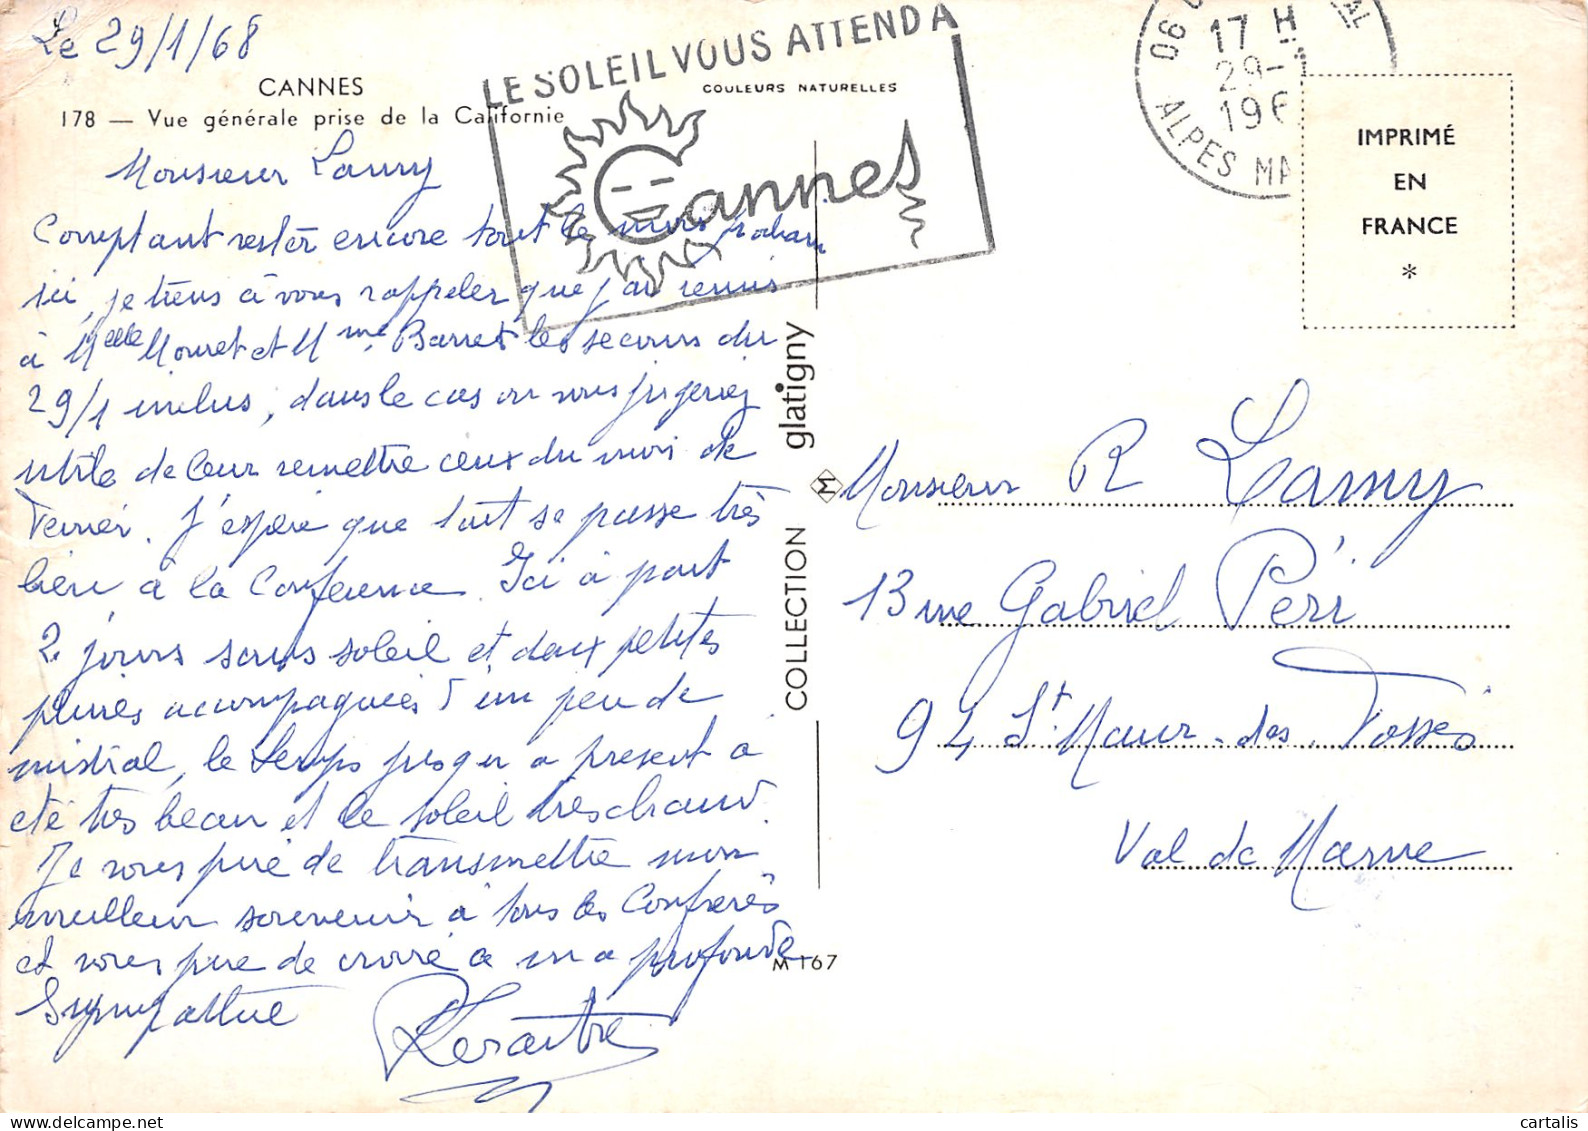 Le 29/1/68
CANNES
178 — Vue générale prise de la Californie
LE SOLEIL VOUS ATTEND A
Cannes
COULEURS NATURELLES
06 AL
17 H
29-1
196
ALPES MA
IMPRIMÉ
EN
FRANCE
*
Monsieur Lamy
Comptant rester encore tout le mois prochain
ici, je tiens à vous rappeler que j'ai remis
à Melle Mouret et Mme Barret les secours du
29/1 inclus, dans le cas ou vous jugeriez
utile de leur remettre ceux du mois de
Février. J'espère que tout se passe très
bien à la Conférence. Ici à part
2 jours sans soleil et deux petites
pluies accompagnées d'un peu de
mistral, le temps jusqu'a présent a
été très beau et le soleil très chaud.
Je vous prie de transmettre mon
meilleur souvenir à tous les Confrères
et vous prie de croire a ma profonde
Sympathie
COLLECTION M glatigny
M 167
Monsieur R Lamy
13 rue Gabriel Péri
94 St Maur-des-Fossés
Val de Marne